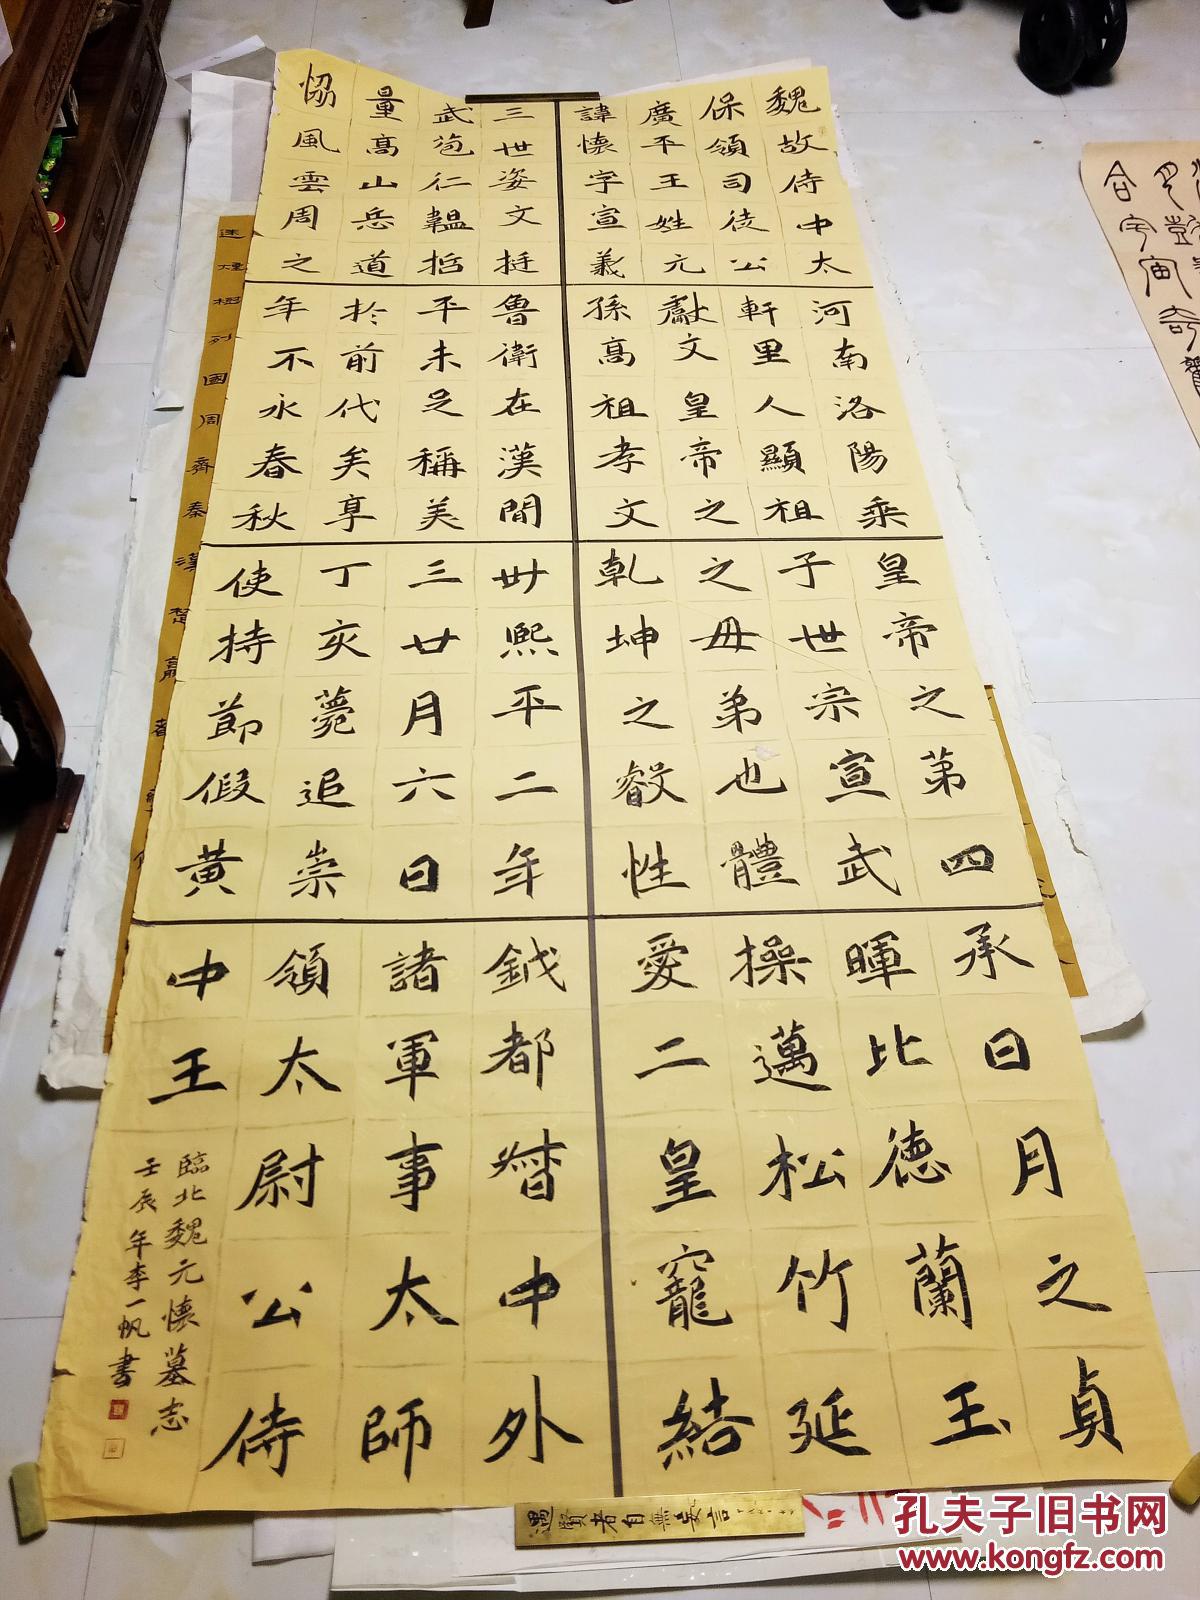 魏故侍中太河南洛陽乘皇帝之第四承日月之貞
保領司徒公軒里人顯祖子世宗宣武暉比德蘭玉
廣平王姓元獻文皇帝之之母弟也體操邁松竹延
諱懷字宣義孫高祖孝文乾坤之叡性愛二皇寵結
三世姿文挺魯衛在漢間卅熙平二年鉞都督中外
武苞仁韞哲平未足稱美三廿月六日諸軍事太師
量高山岳道於前代矣享丁亥薨追崇領太尉公侍
恊風雲周之年不永春秋使持節假黃中王
臨北魏元懷墓志
壬辰年李一帆書
列國周齊秦漢楚
遇賢者自無妄言
孔夫子旧书网
www.kongfz.com